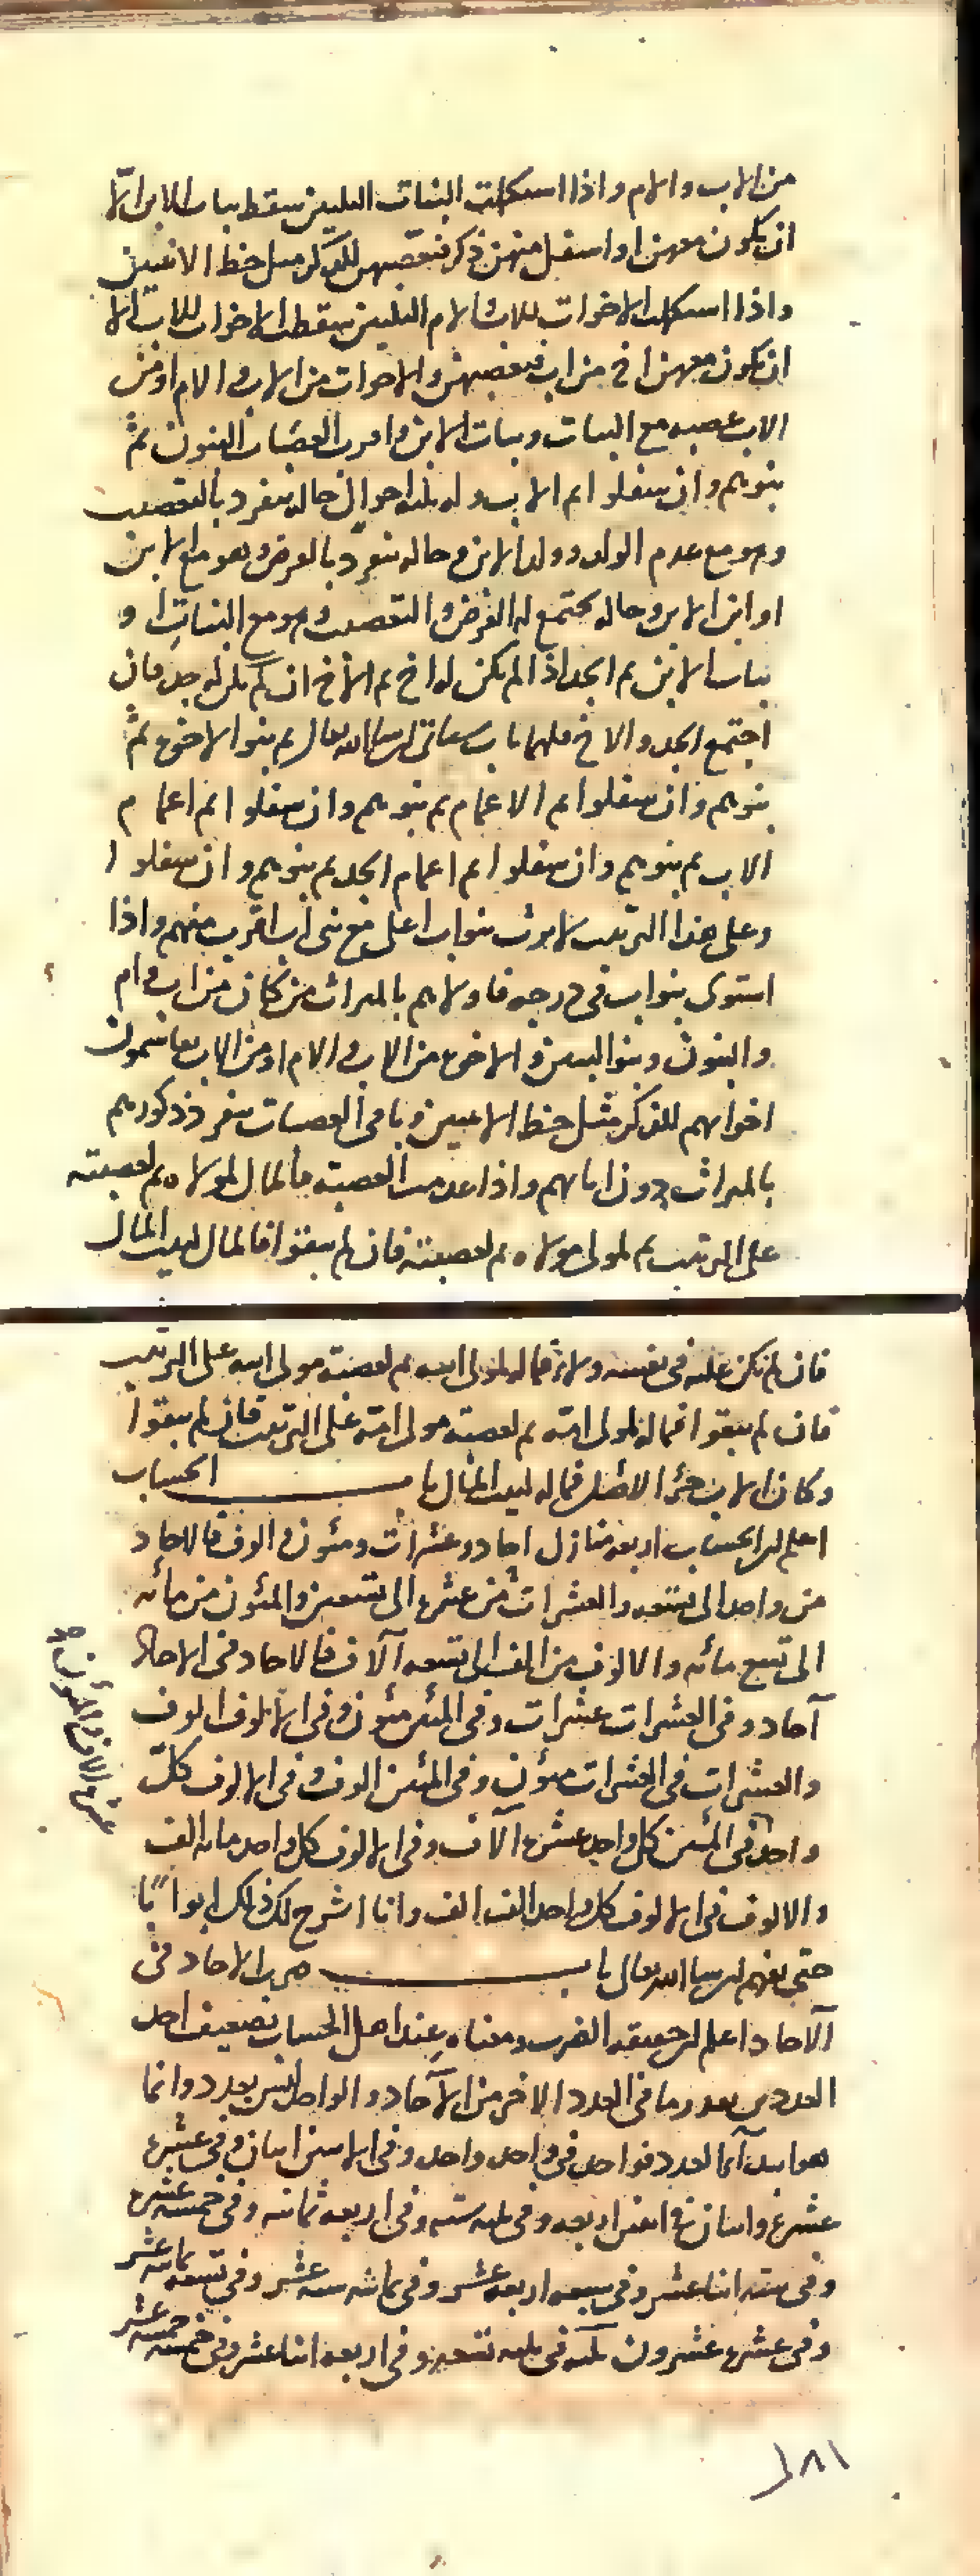 من الاب والام واذا استكملت البنات الثلثين سقط بنات الابن الا
ان يكون معهن او اسفل منهن ذكر فيعصبهن للذكر مثل حظ الانثيين
واذا استكملت الاخوات للاب والام الثلثين سقط الاخوات للاب الا
ان يكون معهن اخ من اب فيعصبهن والاخوات من الاب والام او من
الاب عصبه مع البنات وبنات الابن واقرب العصبات البنون ثم
بنوهم وان سفلوا ثم الاب وله ثلثه احوال حاله ينفرد بالتعصيب
وهو مع عدم الولد وولد الابن وحاله ينفرد بالفرض وهو مع الابن
او ابن الابن وحاله يجتمع له الفرض والتعصيب وهو مع البنات او
بنات الابن ثم الجد اذا لم يكن له اخ ثم الاخ ان لم يكن له جد فان
اجتمع الجد والاخ فلهما باب ياتى ان شا الله تعالى ثم بنوا الاخوه ثم
بنوهم وان سفلوا ثم الاعمام ثم بنوهم وان سفلوا ثم اعمام
الاب ثم بنوهم وان سفلوا ثم اعمام الجد ثم بنوهم وان سفلوا
وعلى هذا الترتيب لا يرث بنو اب اعلى مع بنى اب اقرب منهم واذا
استوى بنو اب فى درجه فاولاهم بالميراث من كان من اب وام
والبنون وبنوا البنين والاخوه من الاب والام او من الاب يقاسمون
اخواتهم للذكر مثل حظ الانثيين وباقى العصبات ينفرد ذكورهم
بالميراث دون اناثهم واذا عدمت العصبه فالمال لمولاه ثم لعصبته
على الترتيب ثم لمولى مولاه ثم لعصبته فان لم يبقوا فالمال لبيت المال
فان لم يكن عليه فى نفسه ولاء فماله لمولى ابيه ثم لعصبة مولى ابيه على الترتيب
فان لم يبقوا فماله لمولى امه ثم لعصبه مولى امه على الترتيب فان لم يبقوا
وكان الاب حر الاصل فماله لبيت المال باب الحساب
اعلم ان الحساب اربعه منازل احاد وعشرات ومئون والوف فالاحاد
من واحد الى تسعه والعشرات من عشره الى تسعين والمئون من مائه
الى تسع مائه والالوف من الف الى تسعه آلاف فالاحاد فى الاحاد
آحاد وفى العشرات عشرات وفى المئين مئون وفى الالوف الوف
والعشرات فى العشرات مئون وفى المئين الوف وفى الالوف كل
واحد فى المئين كل واحد عشرة آلاف وفى الالوف كل واحد مائه الف
والالوف فى الالوف كل واحد الف الف وانا اشرح لك ذلك ابوابا
حتى تفهم ان شا الله تعالى باب ضرب الاحاد فى
الآحاد اعلم ان حقيقه الضرب ومعناه عند اهل الحساب تضعيف احد
العددين بعدد ما فى العدد الاخر من الآحاد والواحد ليس بعدد وانما
هو ابتدآ العدد فواحد فى واحد واحد وفى الاثنين اثنان وفى عشره
عشره واثنان فى اثنين اربعه وفى ثلثه سته وفى اربعه ثمانيه وفى خمسه عشره
وفى سته اثنا عشر وفى سبعه اربعه عشر وفى ثمانيه سته عشر وفى تسعه ثمانيه عشر
وفى عشره عشرون ثلثه فى ثلثه تسعه وفى اربعه اثنا عشر وفى خمسه خمسه عشر